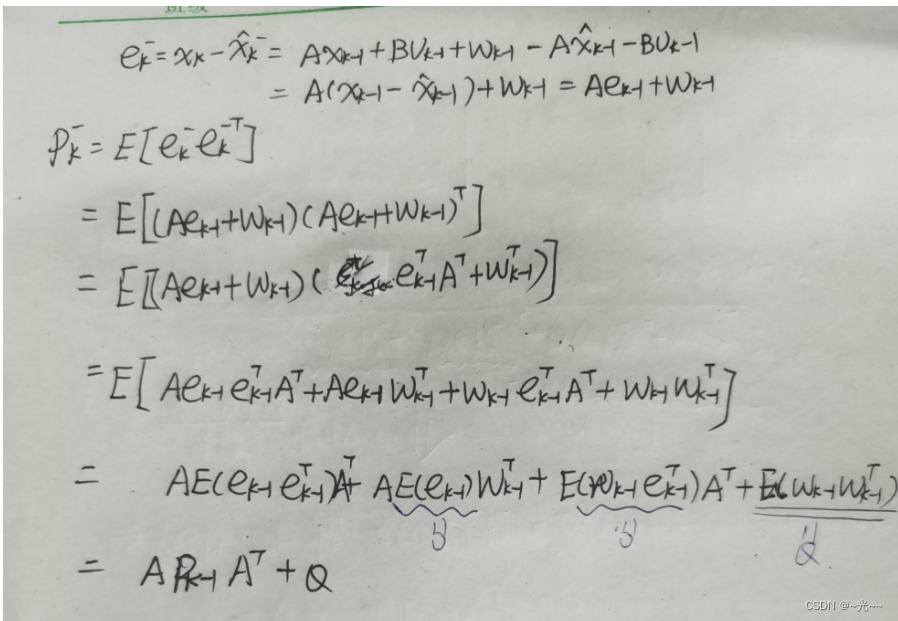 班级
e_k^- = x_k - x̂_k^- = Ax_{k-1} + BU_{k-1} + W_{k-1} - Ax̂_{k-1} - BU_{k-1}
= A(x_{k-1} - x̂_{k-1}) + W_{k-1} = Ae_{k-1} + W_{k-1}
P_k^- = E[e_k^- e_k^{-T}]
= E[(Ae_{k-1} + W_{k-1})(Ae_{k-1} + W_{k-1})^T]
= E[(Ae_{k-1} + W_{k-1})(e_{k-1}^T A^T + W_{k-1}^T)]
= E[Ae_{k-1} e_{k-1}^T A^T + Ae_{k-1} W_{k-1}^T + W_{k-1} e_{k-1}^T A^T + W_{k-1} W_{k-1}^T]
= AE(e_{k-1} e_{k-1}^T)A^T + AE(e_{k-1})W_{k-1}^T + E(W_{k-1} e_{k-1}^T)A^T + E(W_{k-1} W_{k-1}^T)
Q
= AP_{k-1}A^T + Q
CSDN @~光~~